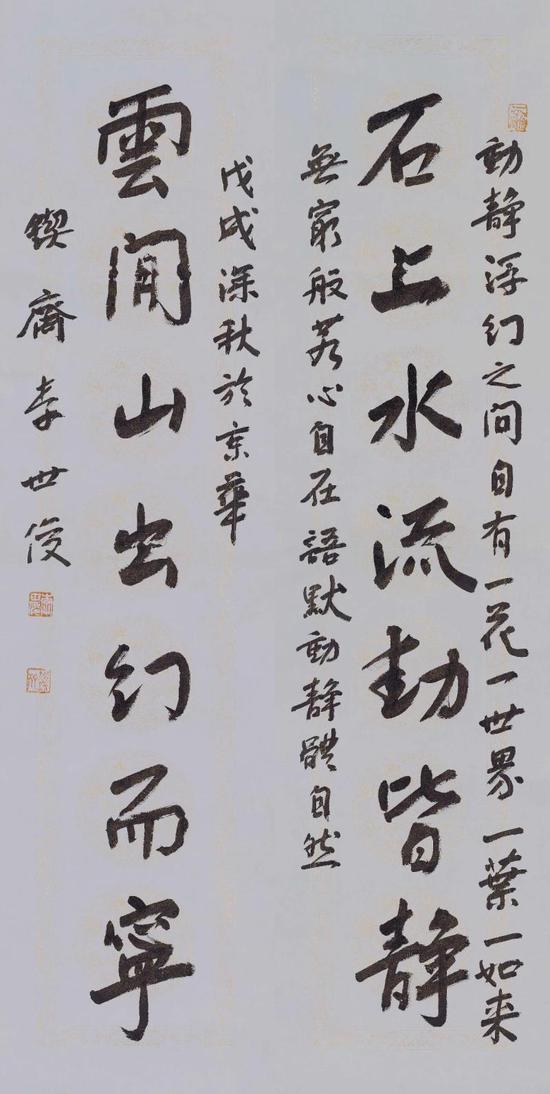 動静浮幻之间自有一花一世界一葉一如来
石上水流動皆静
無窮般若心自在語默動静體自然
戊戌深秋於京華
雲閒山出幻而寧
鍥齋李世俊